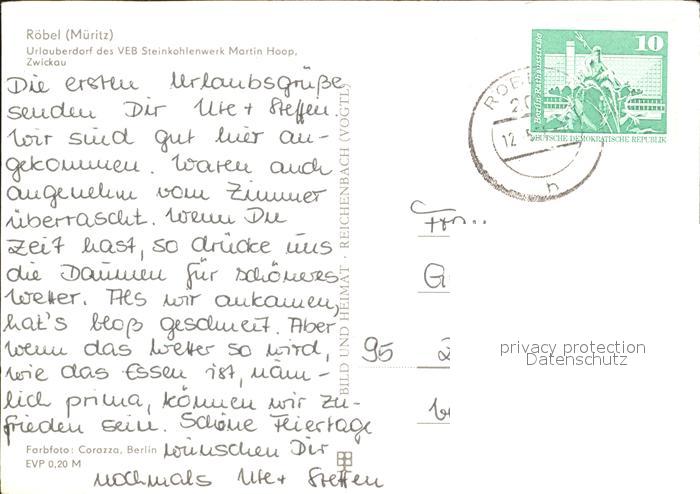 Röbel (Müritz)
Urlauberdorf des VEB Steinkohlenwerk Martin Hoop,
Zwickau
Die ersten Urlaubsgrüße
senden Dir Ute + Steffen.
Wir sind gut hier an-
gekommen. Waren auch
angenehm vom Zimmer
überrascht. Wenn Du
Zeit hast, so drücke uns
die Daumen für schöneres
Wetter. Als wir ankamen,
hat's bloß geschneit. Aber
wenn das Wetter so wird,
wie das Essen ist, näm-
lich prima, können wir zu-
frieden sein. Schöne Feiertage
wünschen Dir
nochmals Ute + Steffen
Farbfoto: Corazza, Berlin
EVP 0,20 M
BILD UND HEIMAT · REICHENBACH (VOGTL)
10
Berlin·Rathausstraße
DEUTSCHE DEMOKRATISCHE REPUBLIK
RÖB
20
12
h
G
95
privacy protection
Datenschutz